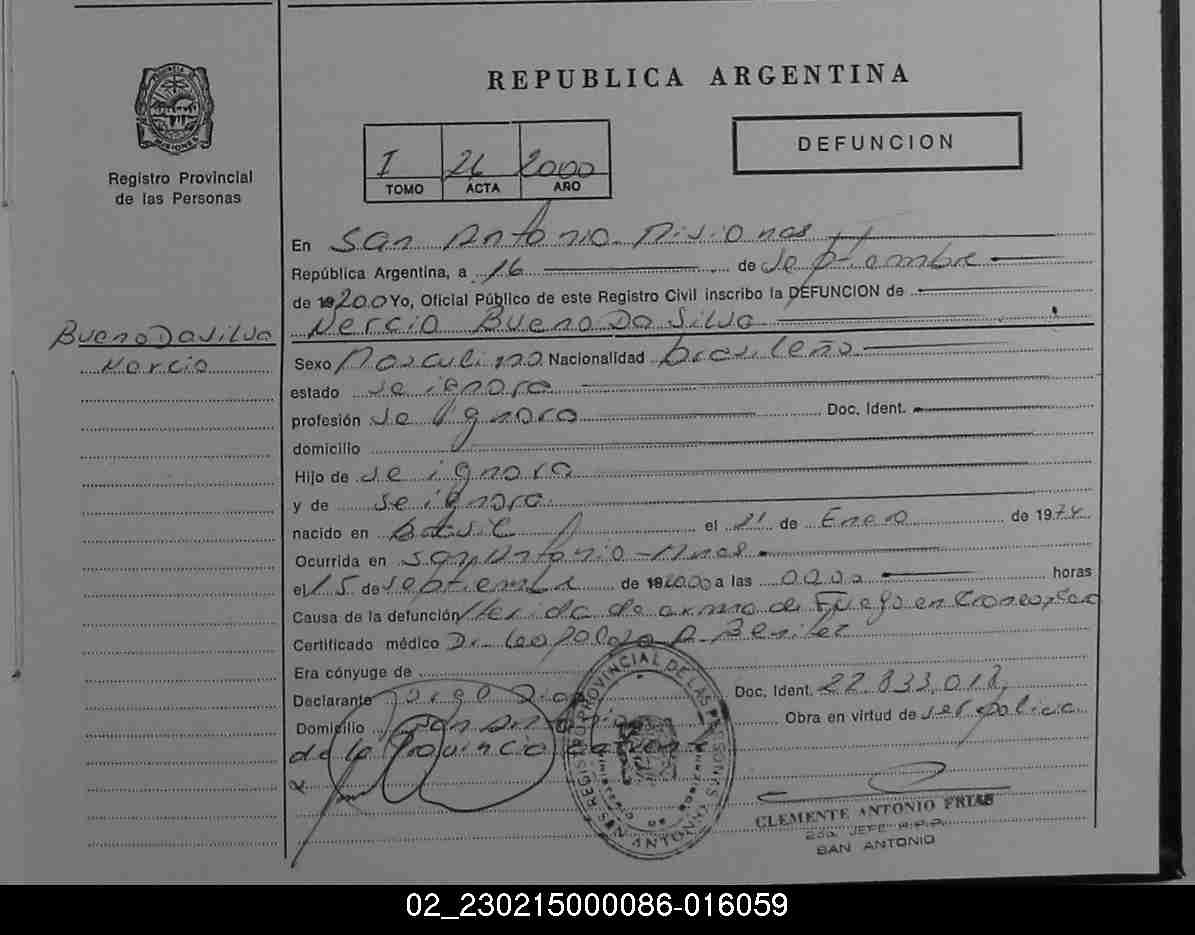 REPUBLICA ARGENTINA
DEFUNCION
I 26 2000
TOMO ACTA AÑO
PROVINCIA DE MISIONES
Registro Provincial
de las Personas
En San Antonio Misiones
República Argentina, a 16 de Septiembre
de 192000 Yo, Oficial Público de este Registro Civil inscribo la DEFUNCION de
Nercio Bueno Da Silva
Bueno Da Silva
Nercio
Sexo Masculino Nacionalidad brasileño
estado se ignora
profesión se ignora Doc. Ident.
domicilio
Hijo de se ignora
y de se ignora
nacido en Brasil el 21 de Enero de 1974
Ocurrida en San Antonio - Mnes
el 15 de Septiembre de 192000 a las horas
Causa de la defunción Herida de arma de Fuego en
Certificado médico Dr. Leopoldo R. Benitez
Era cónyuge de
Declarante Jorge Doc. Ident. 22.833.018
Domicilio San Antonio Obra en virtud de ser policia
de la Provincia
REGISTRO PROVINCIAL DE LAS PERSONAS
MINISTERIO DE GOBIERNO
SAN ANTONIO
CLEMENTE ANTONIO FRIAS
JEFE R.P.P.
SAN ANTONIO
02_230215000086-016059